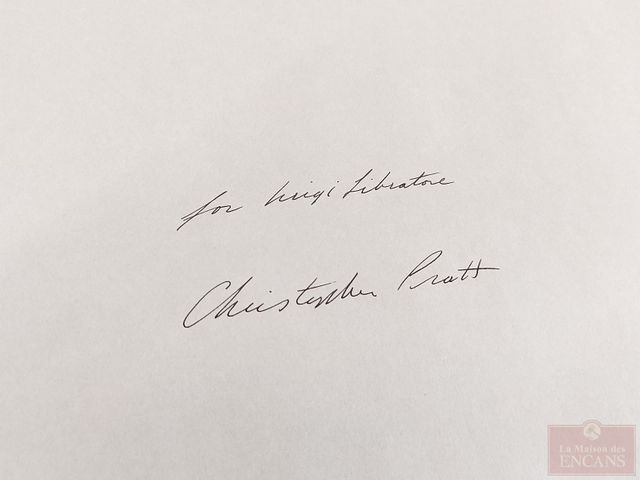 for Luigi Libratore
Christopher Pratt
La Maison des
ENCANS